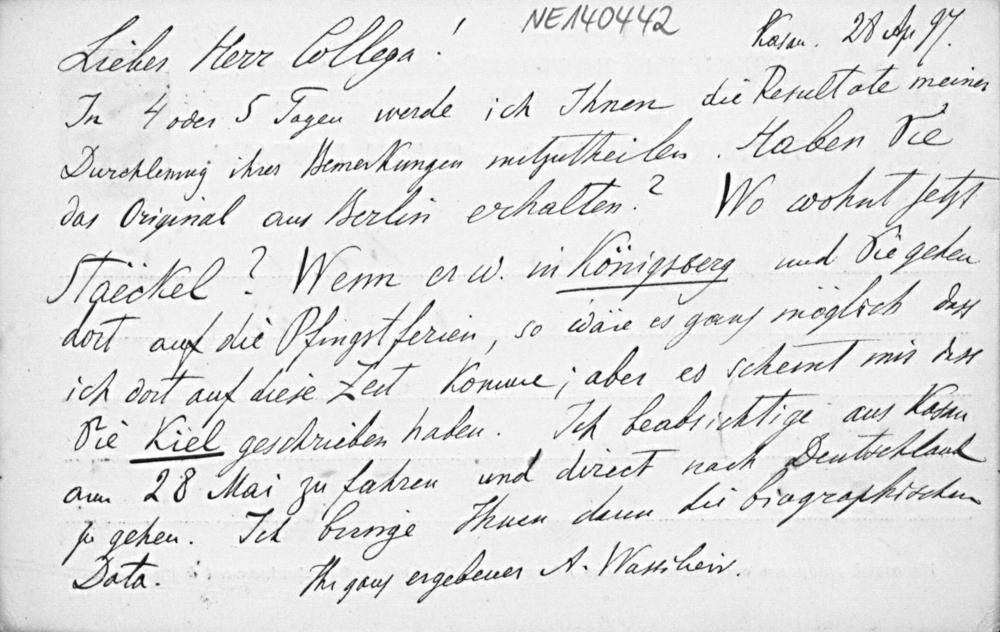 NE140442
Kasan. 28 Ap. 97.
Lieber Herr Collega!
In 4 oder 5 Tagen werde ich Ihnen die Resultate meiner
ihrer Bemerkungen mitzutheilen. Haben Sie
das Original aus Berlin erhalten? Wo wohnt jetzt
Stäeckel? Wenn er w. in Königsberg und Sie gehen
dort auf die Pfingstferien, so wäre es ganz möglich dass
ich dort auf diese Zeit komme; aber es scheint mir dass
Sie Kiel geschrieben haben. Ich beabsichtige aus Kasan
am 28 Mai zu fahren und direct nach Deutschland
zu gehen. Ich bringe Ihnen dann die biographischen
Data. Ihr ganz ergebener A. Wassiliew.